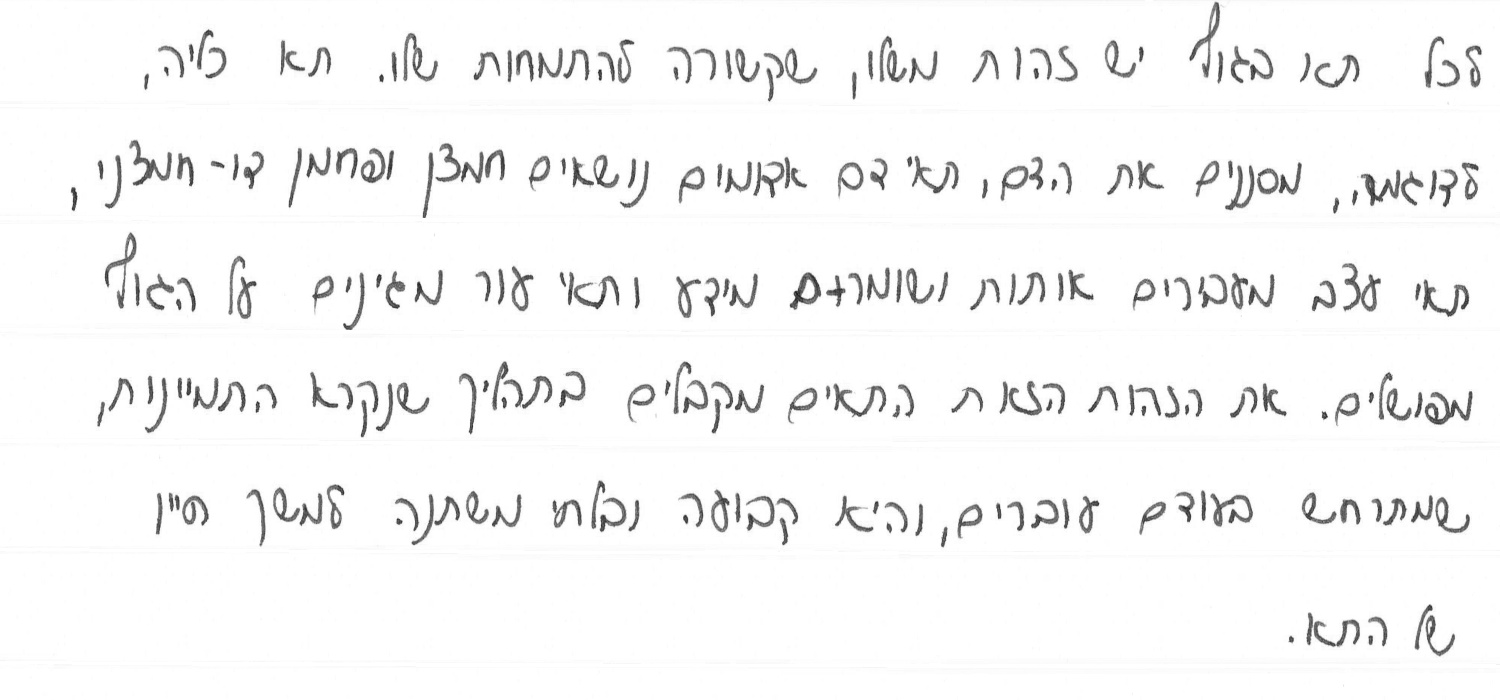 לכל תא בגוף יש זהות משלו, שקשורה להתמחות שלו. תא כליה,
לדוגמה, מסננים את הדם, תאי דם אדומים נושאים חמצן ופחמן דו-חמצני,
תאי עצב מעבירים אותות ושומרים מידע ותאי עור מגינים על הגוף
מפושלים. את הזהות הזאת התאים מקבלים בתהליך שנקרא התמיינות,
שמתרחש בעודם עוברים, והיא קבועה ובלתי משתנה למשך חייו
של התא.